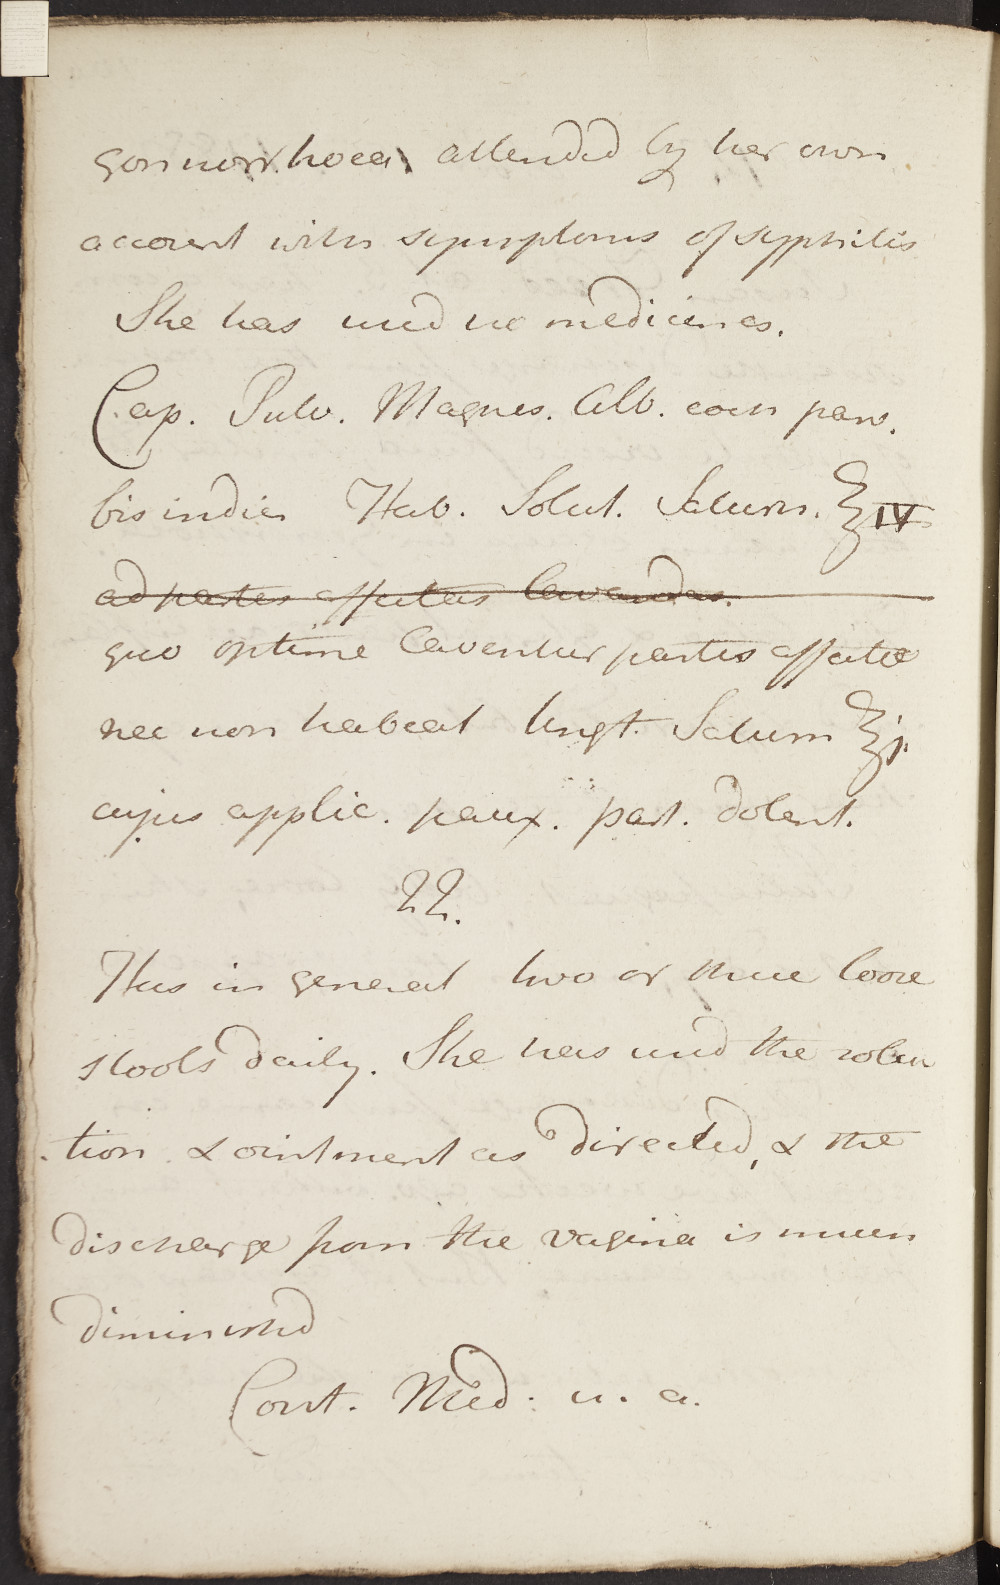 gonnorrhoea attended by her own
account with symptoms of syphilis
She has used no medicines.
Cap. Pulv. Magnes. Alb. com parv.
bis indies Hab. Solut. Saturn. ℥IV
ad partes affectas lavandas.
quo optime laventur partes affectæ
nec non habeat Ungt. Saturn ℥j.
cujus applic. paux. part. dolent.
22.
Has in general two or three loose
stools daily. She has used the solu
tion & ointment as directed, & the
discharge from the vagina is much
diminished
Cont. Med. u. a.